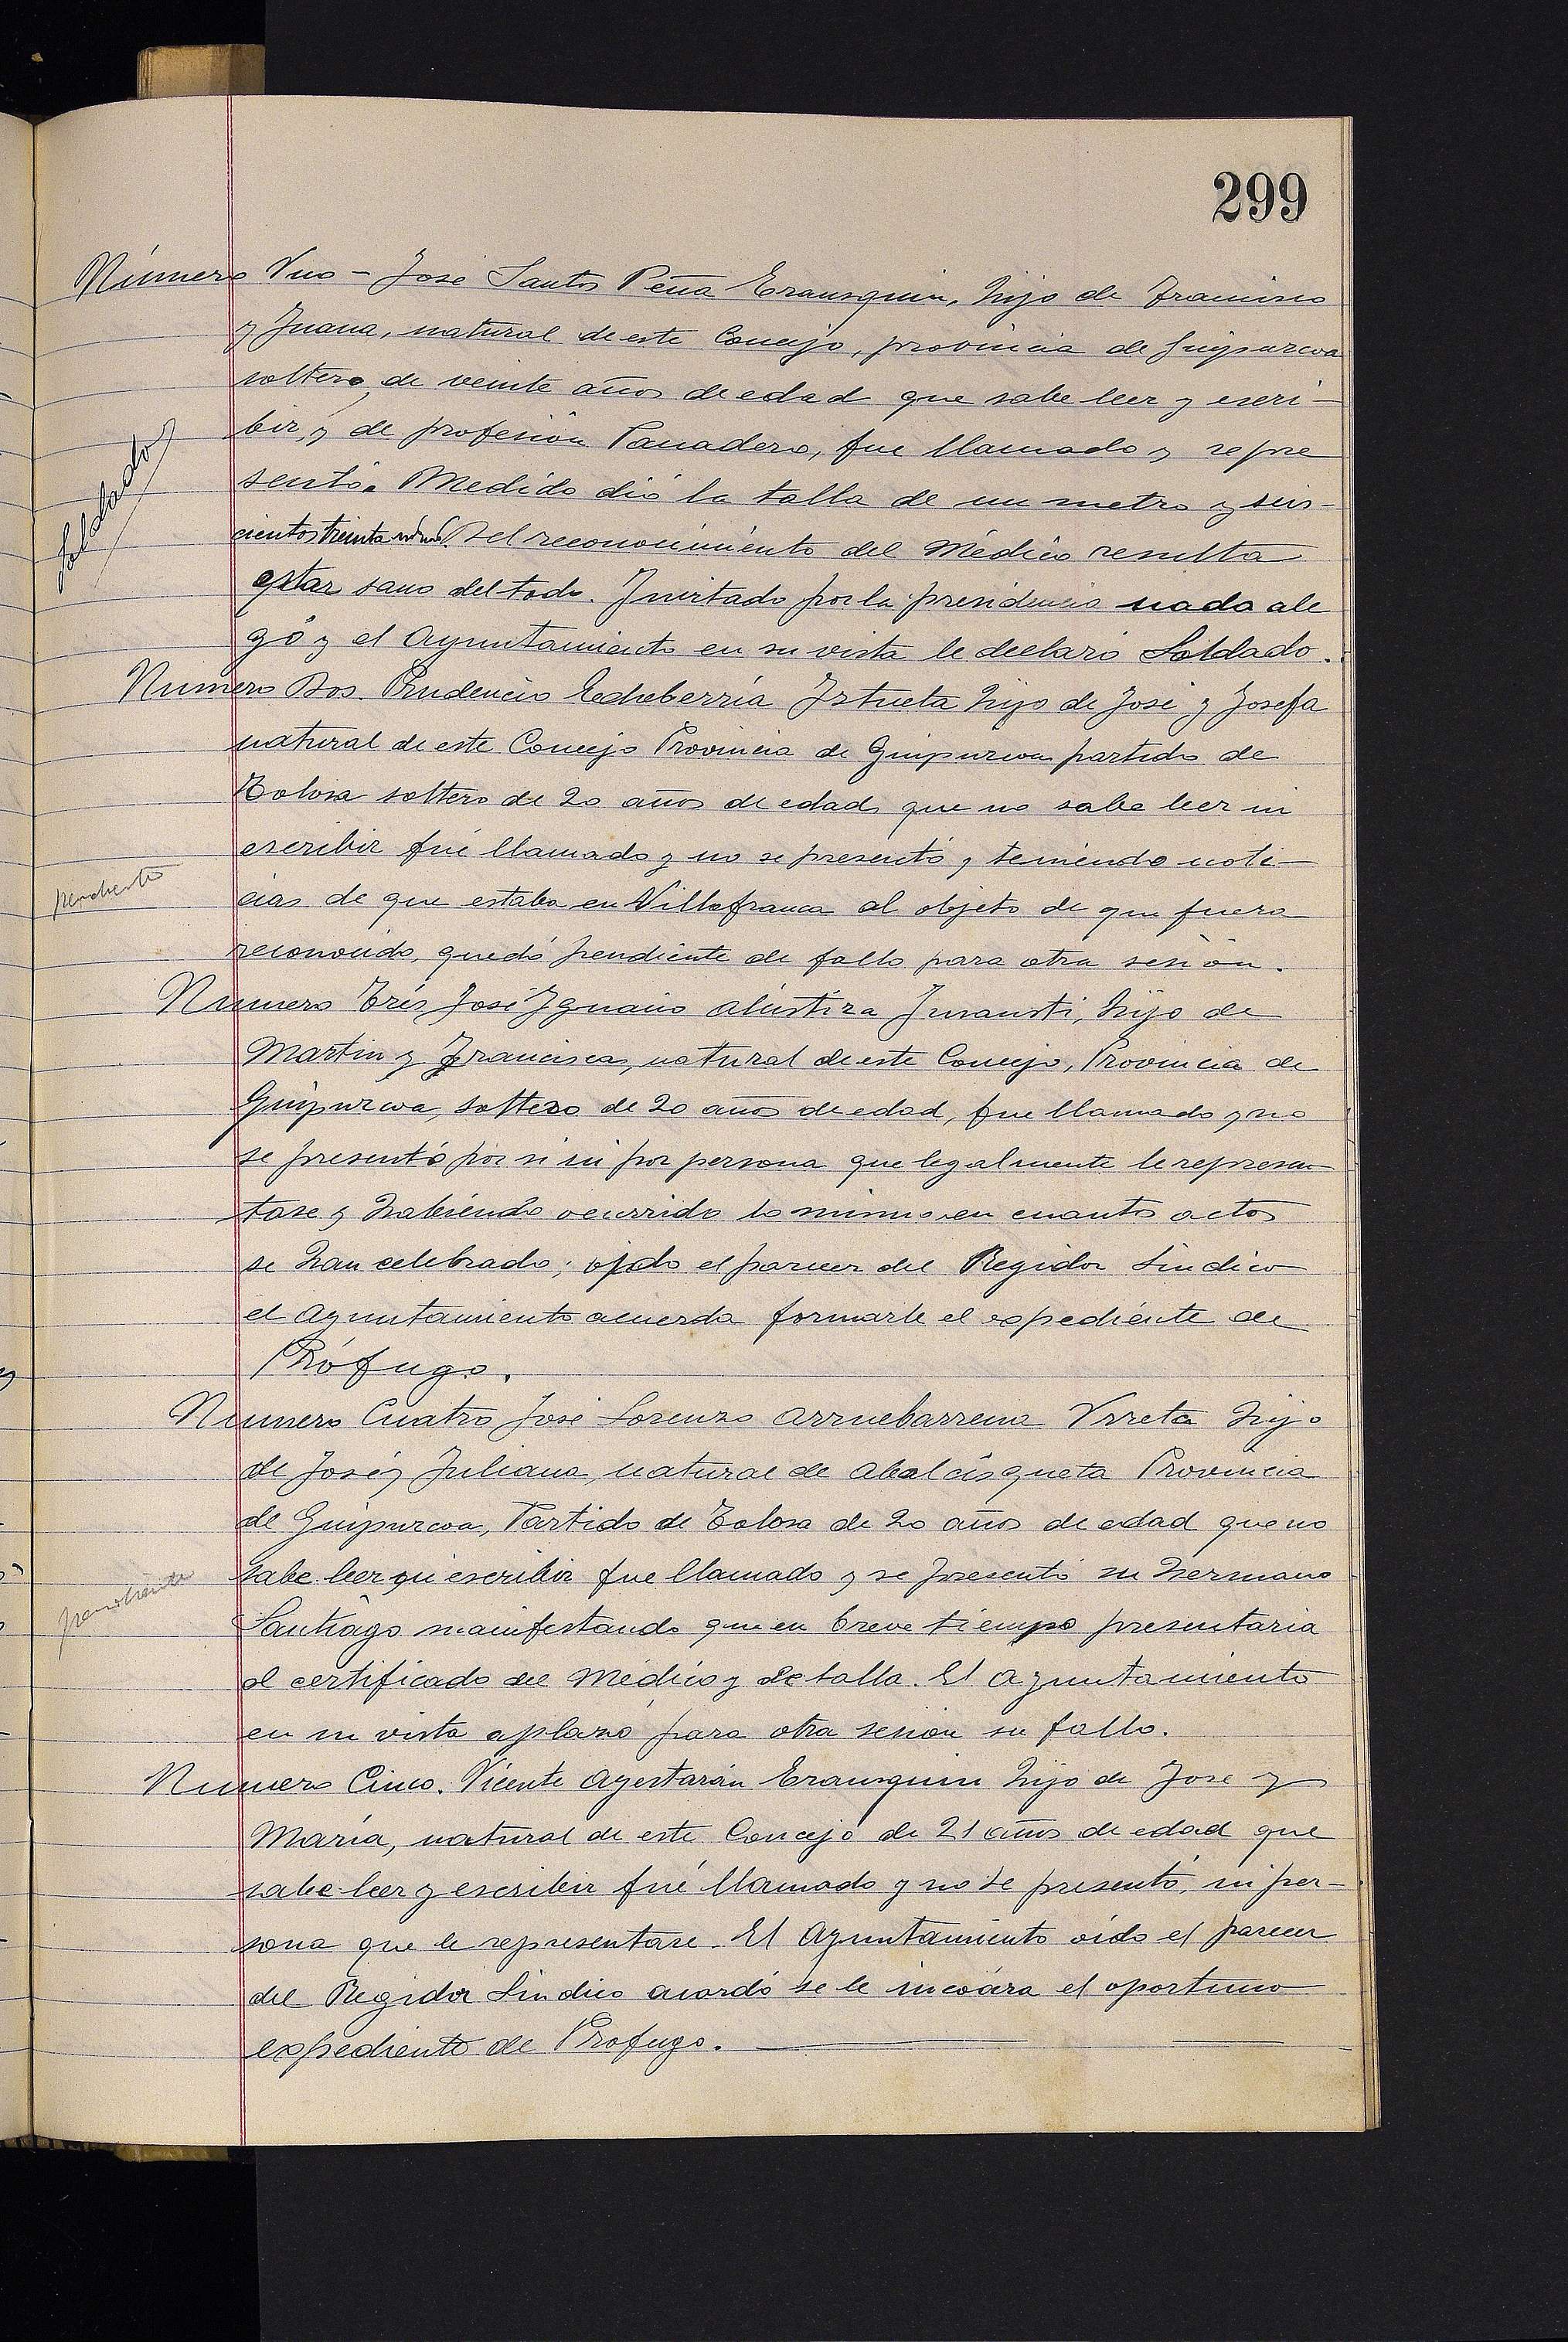 299
Número Uno - José Santos Peña Erausquin, hijo de Francisco
y Juana, natural de este Concejo, provincia de Guipuzcoa
soltero, de veinte años de edad que sabe leer y escri-
bir, y de profesión Panadero, fue llamado y se pre
sentó. Medido dió la talla de un metro y seis-
Soldado
cientos treinta Del reconocimiento del Médico resulta
estar sano del todo. Invitado por la presidencia nada ale
gó y el Ayuntamiento en su vista le declaró Soldado.
Numero Dos. Prudencio Echeberria Iztueta hijo de José y Josefa
natural de este Concejo Provincia de Guipuzcoa partido de
Tolosa soltero de 20 años de edad que no sabe leer ni
escribir fué llamado y no se presentó y teniendo noti-
pendiente
cias de que estaba en Villafranca al objeto de que fuera
reconocido, quedó pendiente de fallo para otra sesión.
Numero Tres, José Ignacio Alustiza Jurausti, hijo de
Martin y Francisca, natural de este Concejo, Provincia de
Guipuzcoa, soltero de 20 años de edad, fue llamado y no
se presentó por si ni por persona que legalmente le represen
tase y habiendo ocurrido lo mismo en cuantos actos
se han celebrado; oído el parecer del Regidor Sindico
el Ayuntamiento acuerda formarle el expediente de
Prófugo.
Numero Cuatro José Lorenzo Arruebarrena Urreta hijo
de José y Juliana, natural de Abalcisqueta Provincia
de Guipuzcoa, Partido de Tolosa de 20 años de edad que no
sabe leer ni escribir fue llamado y se presentó su hermano
pendiente
Santiago manifestando que en breve tiempo presentaria
el certificado del Médico y de talla. El Ayuntamiento
en su vista aplazó para otra sesion su fallo.
Numero Cinco. Vicente Ayestarán Erausquin hijo de Jose y
María, natural de este Concejo de 21 años de edad que
sabe leer y escribir fué llamado y no se presentó, ni per-
sona que le representase. El Ayuntamiento oido el parecer
del Regidor Sindico acordó se le incoára el oportuno
expediente de Profugo.